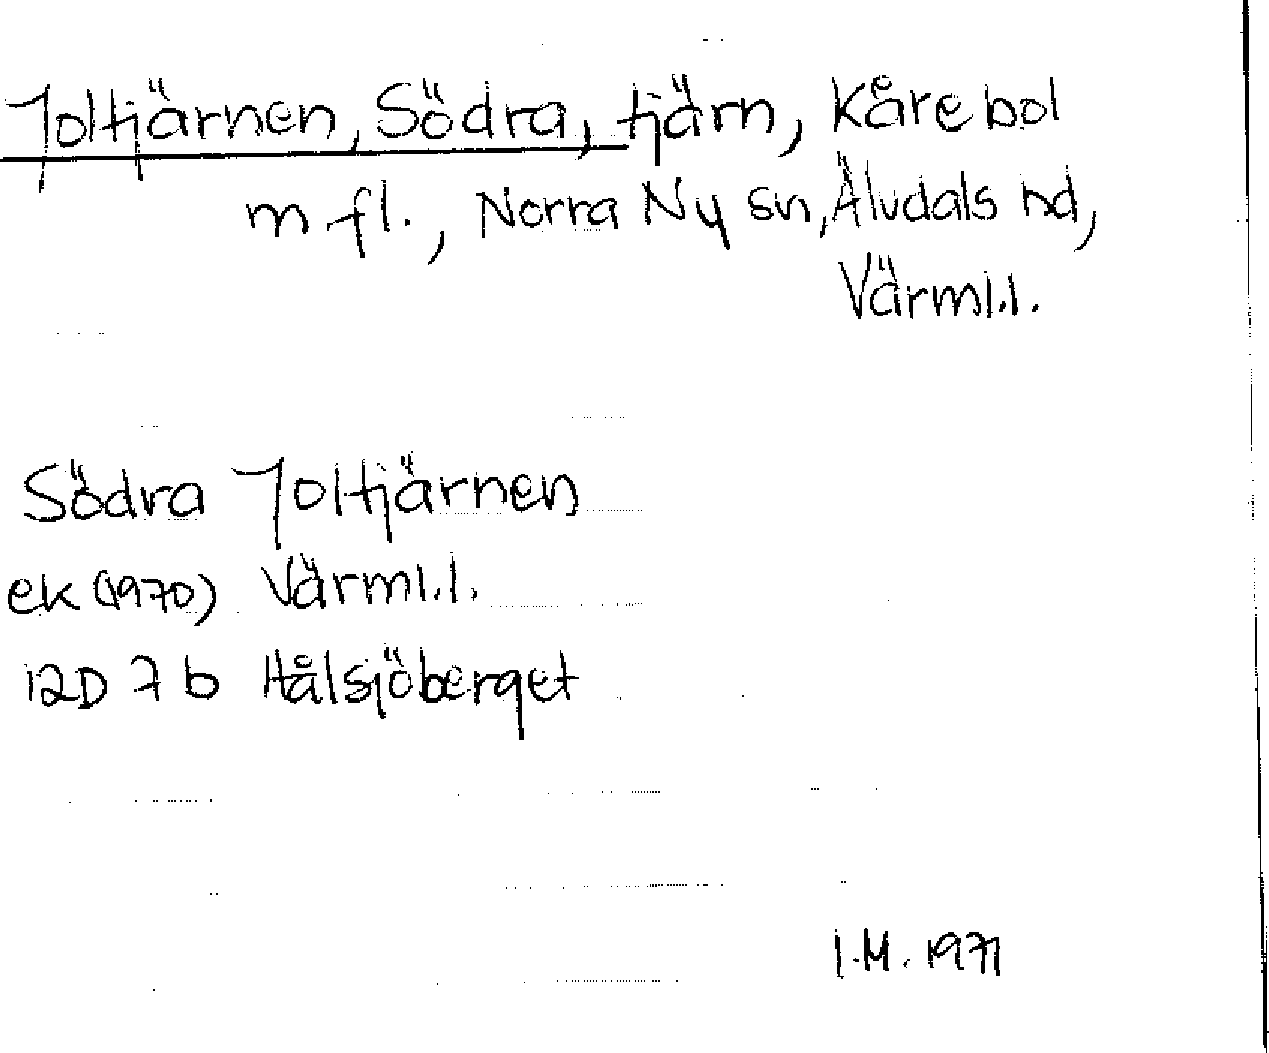 Joltjärnen, Södra, tjärn, Kårebol
m fl., Norra Ny sn, Älvdals hd,
Värml.l.
Södra Joltjärnen
ek (1970) Värml.l.
12D 7b Hålsjöberget
I.M. 1971